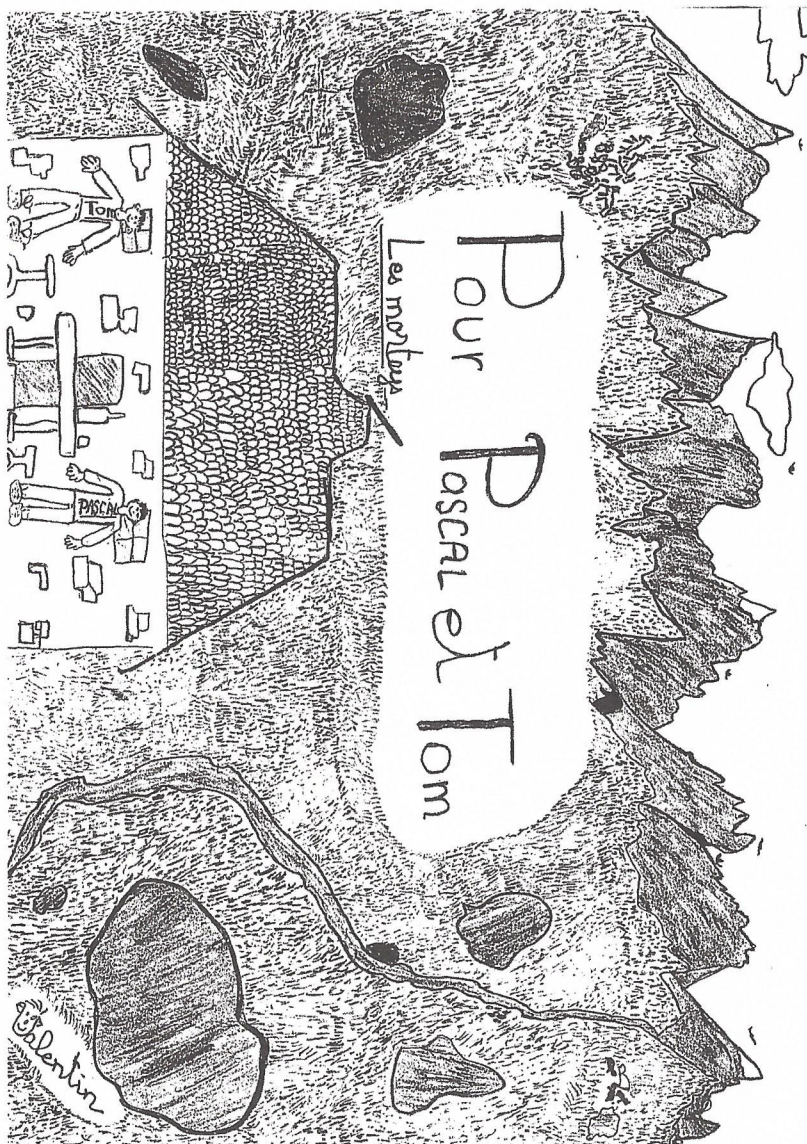 Pour Pascal et Tom
Les mottets
TOM
PASCAL
Valentin